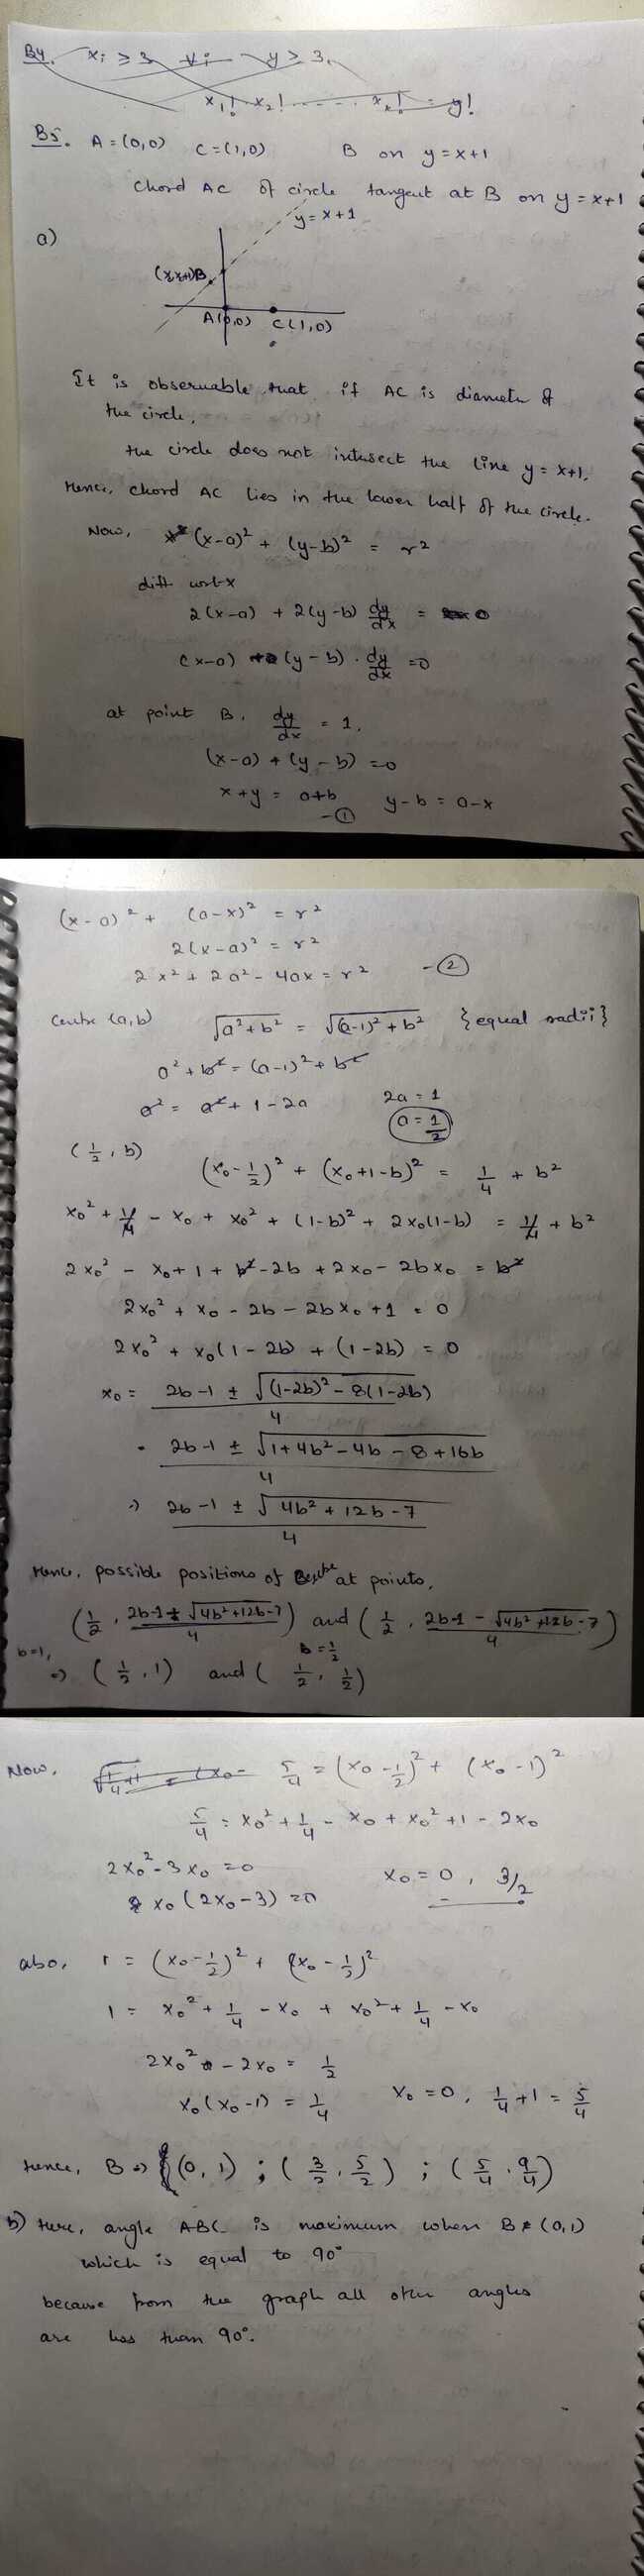 B4. xᵢ ≥ 3 ∀i y > 3,
x₁! x₂! - - - - - xₙ! = y!
B5. A = (0,0) C = (1,0) B on y = x+1
Chord AC of circle tangent at B on y = x+1
a)
y = x+1
(x,x+1)B
A(0,0) C(1,0)
It is observable that if AC is diameter of
the circle,
the circle does not intersect the line y = x+1.
Hence, chord AC lies in the lower half of the circle.
Now, (x-a)² + (y-b)² = r²
diff wrt x
2(x-a) + 2(y-b) dy/dx = 0
(x-a) + (y-b) · dy/dx = 0
at point B, dy/dx = 1,
(x-a) + (y-b) = 0
x+y = a+b y-b = a-x
-①
(x-a)² + (a-x)² = r²
2(x-a)² = r²
2x² + 2a² - 4ax = r² -②
Centre (a,b) √(a²+b²) = √((a-1)²+b²) {equal radii}
a² + b² = (a-1)² + b²
a² = a² + 1 - 2a 2a = 1
a = 1/2
(1/2, b)
(x₀ - 1/2)² + (x₀+1-b)² = 1/4 + b²
x₀² + 1/4 - x₀ + x₀² + (1-b)² + 2x₀(1-b) = 1/4 + b²
2x₀² - x₀ + 1 + b² - 2b + 2x₀ - 2bx₀ = b²
2x₀² + x₀ - 2b - 2bx₀ + 1 = 0
2x₀² + x₀(1-2b) + (1-2b) = 0
x₀ = (2b-1 ± √((1-2b)² - 8(1-2b)))/4
= (2b-1 ± √(1+4b²-4b-8+16b))/4
⇒ (2b-1 ± √(4b²+12b-7))/4
Hence, possible positions of at points,
(1/2, (2b-1+√(4b²+12b-7))/4) and (1/2, (2b-1-√(4b²+12b-7))/4)
b=1, b = 1/2
⇒ (1/2, 1) and (1/2, 1/2)
Now, 5/4 = (x₀ - 1/2)² + (x₀-1)²
5/4 = x₀² + 1/4 - x₀ + x₀² + 1 - 2x₀
2x₀² - 3x₀ = 0 x₀ = 0, 3/2
x₀(2x₀-3) = 0
also, 1 = (x₀ - 1/2)² + (x₀ - 1/2)²
1 = x₀² + 1/4 - x₀ + x₀² + 1/4 - x₀
2x₀² - 2x₀ = 1/2
x₀(x₀-1) = 1/4 x₀ = 0, 1/4 + 1 = 5/4
Hence, B ⇒ (0,1) ; (3/2, 5/2) ; (5/4, 9/4)
b) Here, angle ABC is maximum when B (0,1)
which is equal to 90°
because from the graph all other angles
are less than 90°.